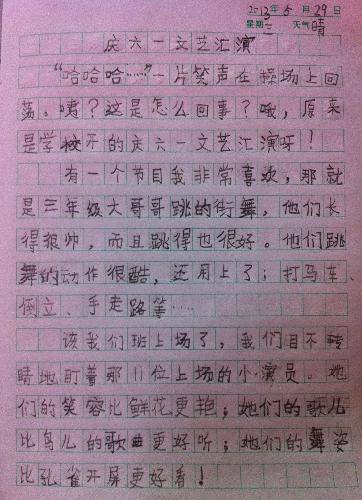 2013年5月29日
星期三 天气晴
庆六一文艺汇演
“哈哈哈……”一片笑声在操场上回
荡。咦?这是怎么回事?哦,原来
是学校开的庆六一文艺汇演呀!
有一个节目我非常喜欢,那就
是三年级大哥哥跳的街舞,他们长
得很帅,而且跳得也很好。他们跳
舞的动作很酷,还用上了;打马车、
倒立、手走路等……
该我们班上场了,我们目不转
睛地盯着那11位上场的小演员。她
们的笑容比鲜花更艳;她们的歌儿
比鸟儿的歌曲更好听;她们的舞姿
比孔雀开屏更好看!